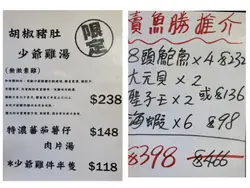 限定
胡椒豬肚
少爺雞湯
$238
特濃蕃茄薯仔 $148
肉片湯
*少爺雞件半隻 $118
賣魚勝推介
8頭鮑魚x4 $232
大元貝 x 2
聖子王x2 或$136
海蝦 x 6 $98
$398 $466